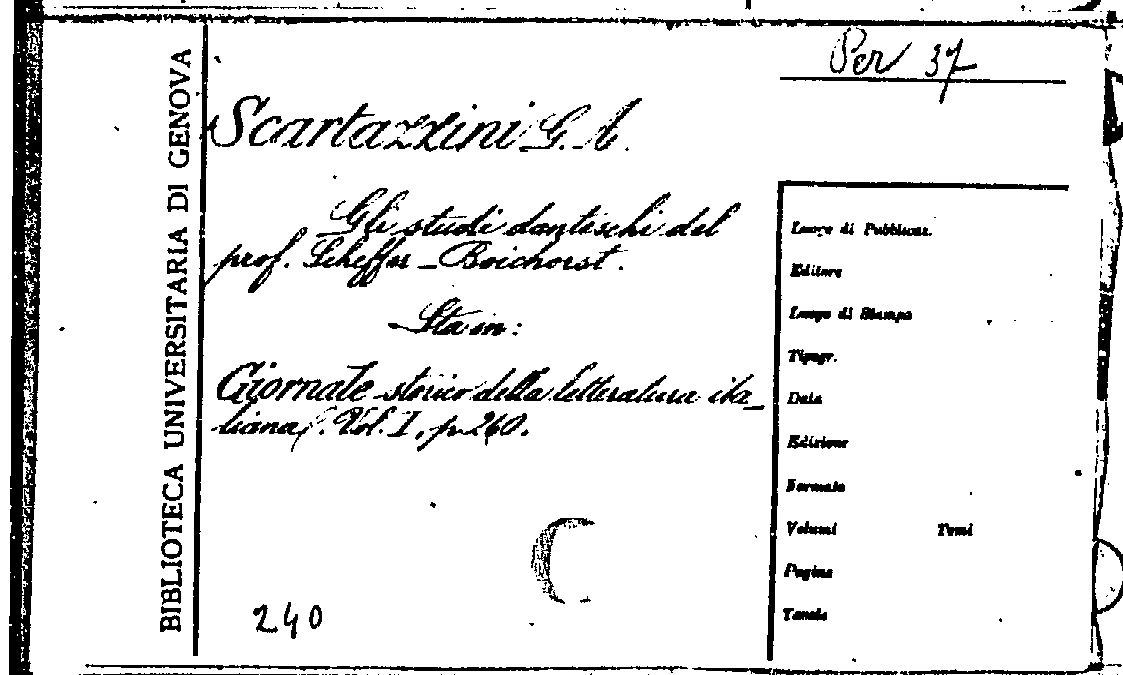 BIBLIOTECA UNIVERSITARIA DI GENOVA
Per 37
Scartazzini G. A.
Gli studi danteschi del
prof. Scheffer-Boichorst.
Sta in:
Giornale storico della letteratura ita-
liana. Vol. I, p. 260.
240
Luogo di Pubblicaz.
Editore
Luogo di Stampa
Tipogr.
Data
Edizione
Formato
Volumi Tomi
Pagine
Tavole